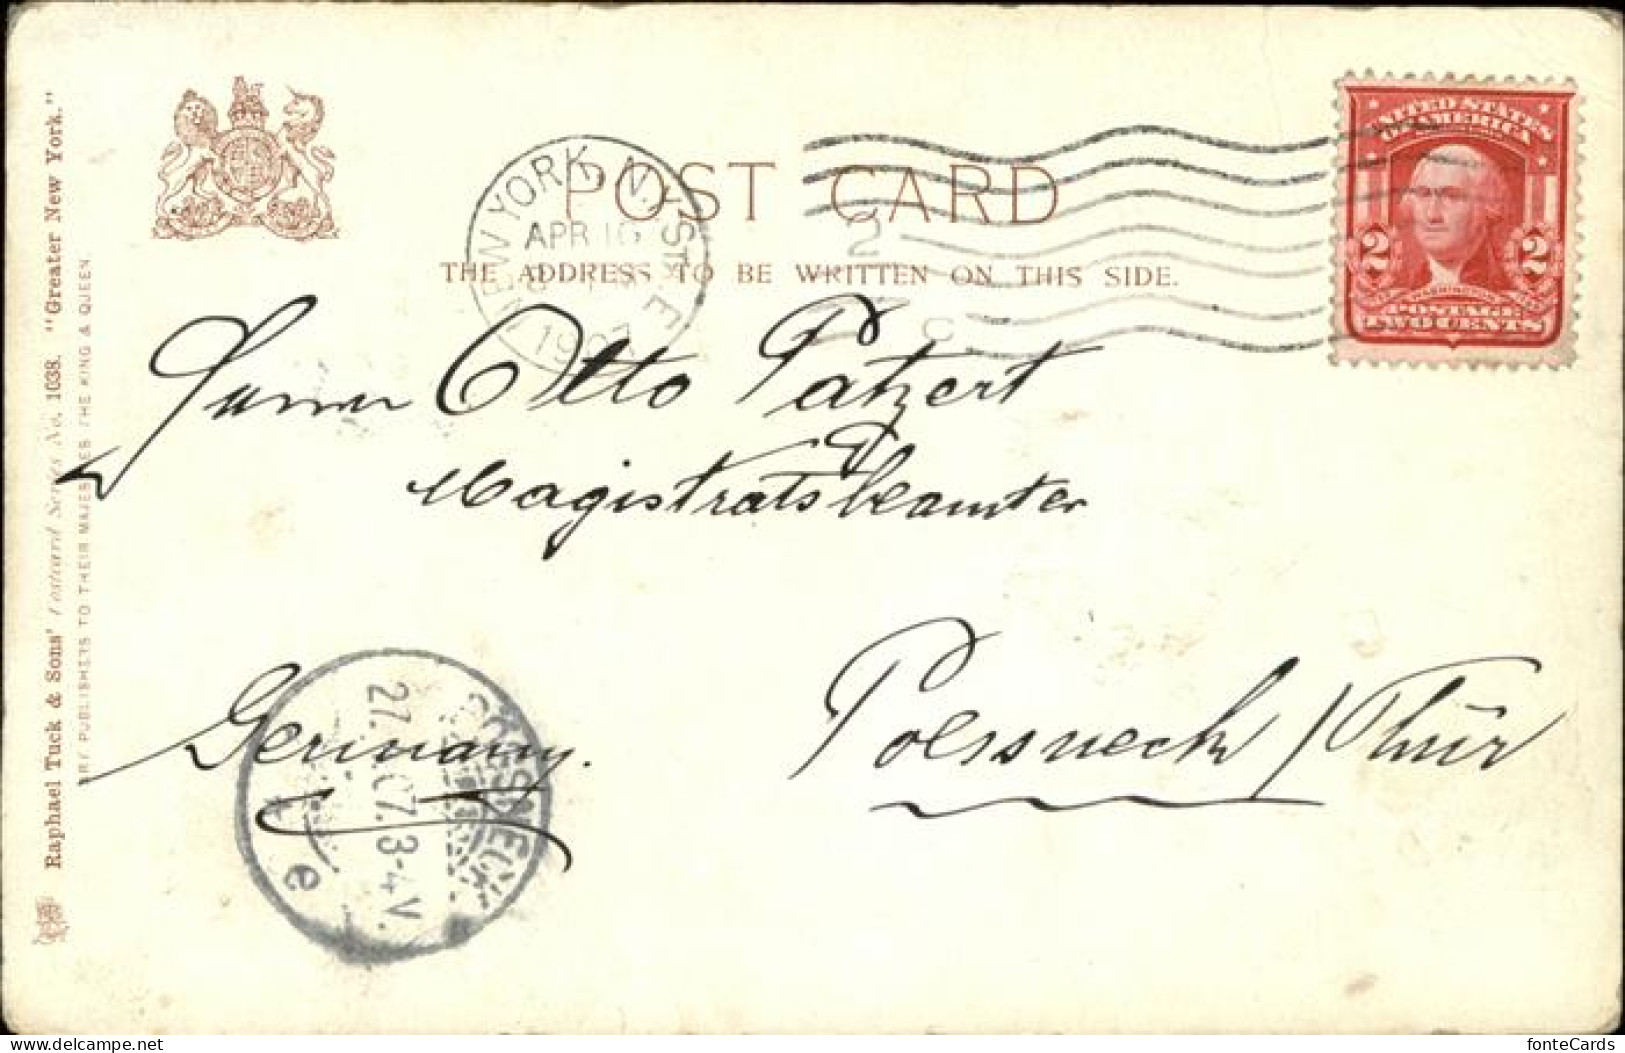 POST CARD
THE ADDRESS TO BE WRITTEN ON THIS SIDE.
NEW YORK, N.Y. STA. E
APR 16
1907
2
C
UNITED STATES
OF AMERICA
2 2
WASHINGTON
POSTAGE
TWO CENTS
Herrn Otto Patzert
Magistratsbeamter
Poessneck / Thür
Germany.
POESSNECK
27. 07. 3-4 V.
e
Raphael Tuck & Sons' Postcard Series No. 1038. "Greater New York."
ART PUBLISHERS TO THEIR MAJESTIES THE KING & QUEEN.
fonteCards